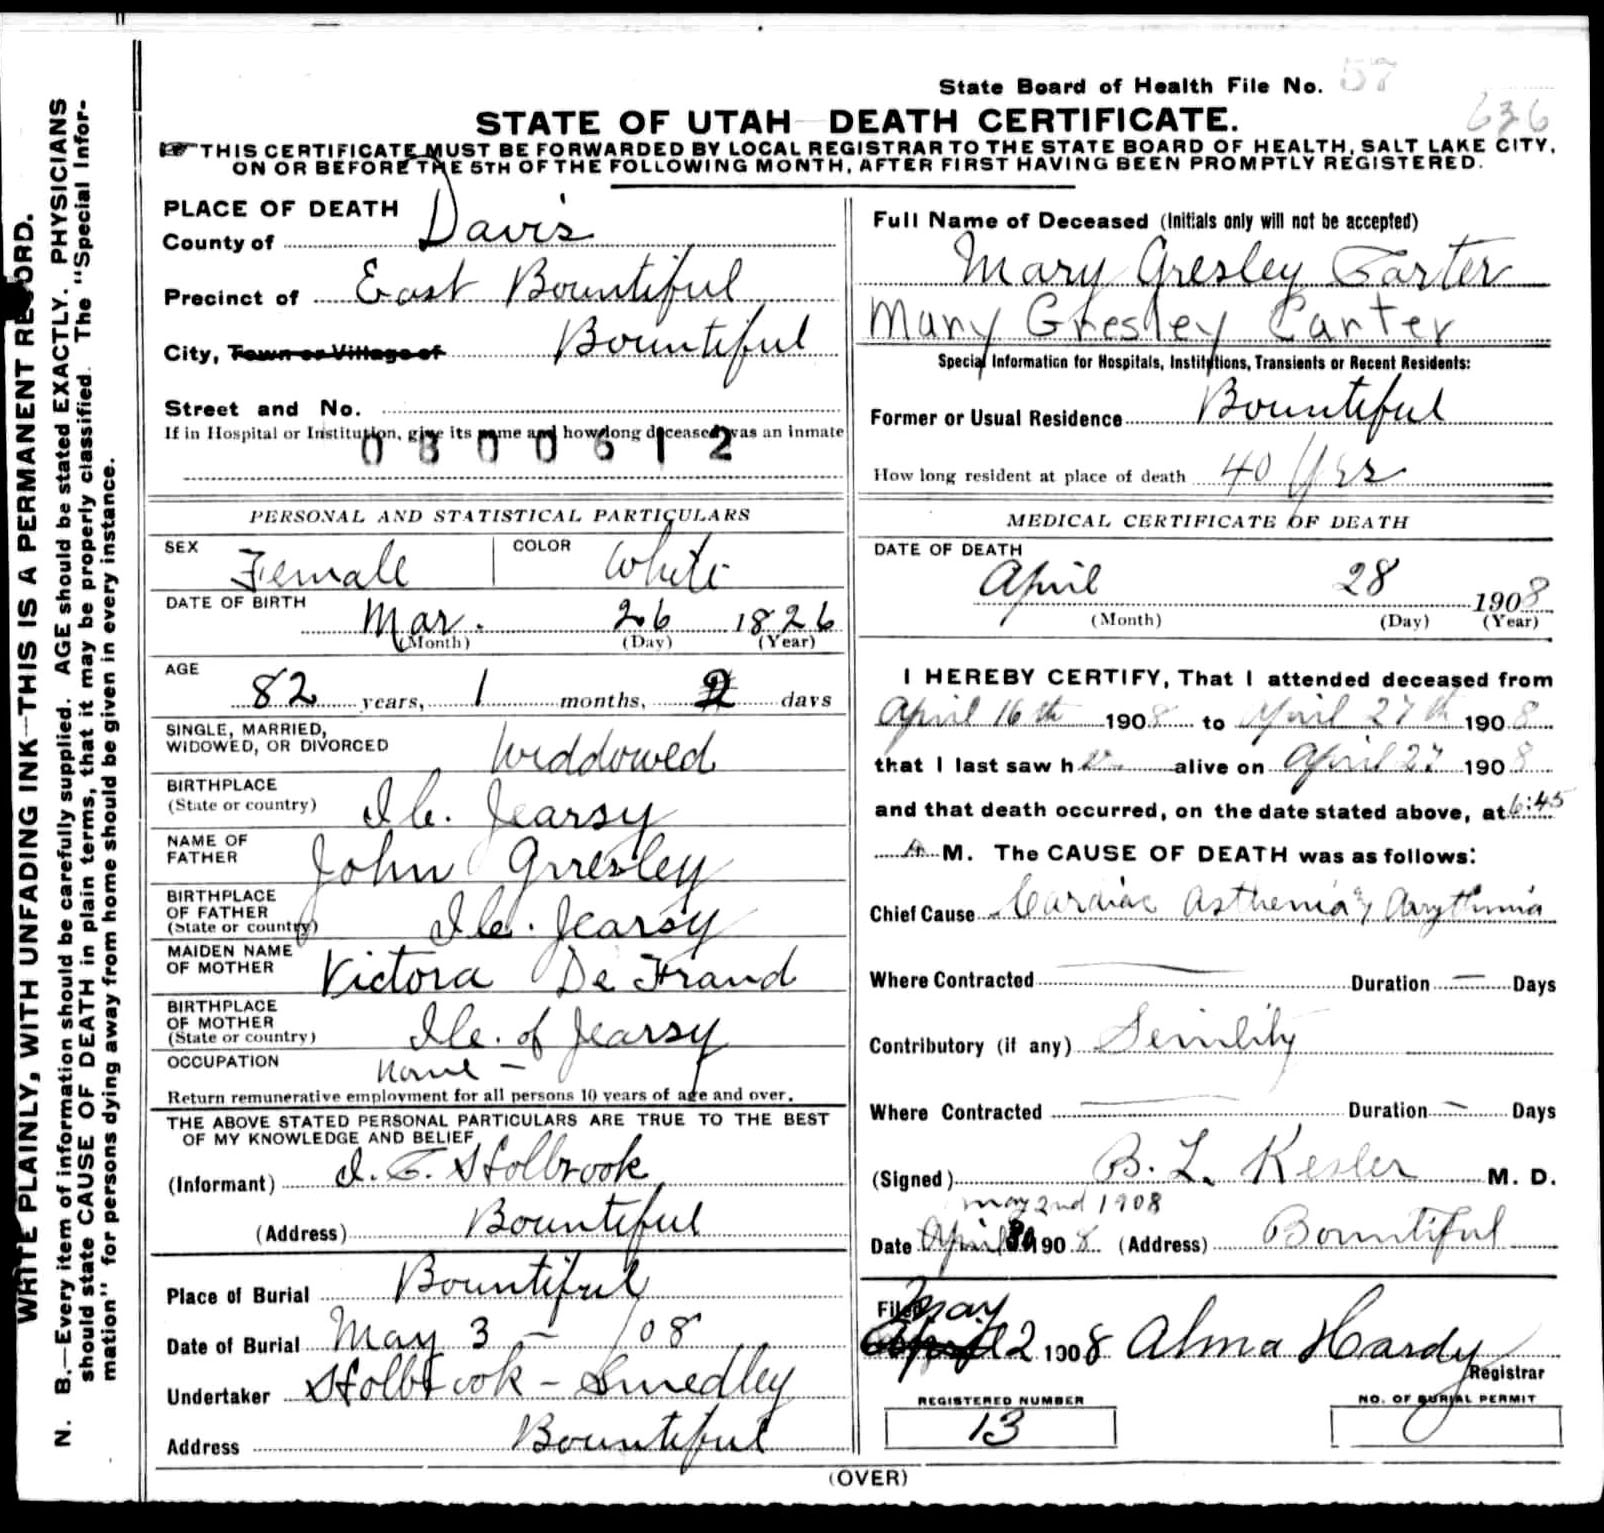 State Board of Health File No. 57
636
STATE OF UTAH—DEATH CERTIFICATE.
THIS CERTIFICATE MUST BE FORWARDED BY LOCAL REGISTRAR TO THE STATE BOARD OF HEALTH, SALT LAKE CITY,
ON OR BEFORE THE 5TH OF THE FOLLOWING MONTH, AFTER FIRST HAVING BEEN PROMPTLY REGISTERED.
WRITE PLAINLY, WITH UNFADING INK—THIS IS A PERMANENT RECORD.
N. B.—Every item of information should be carefully supplied. AGE should be stated EXACTLY. PHYSICIANS
should state CAUSE OF DEATH in plain terms, that it may be properly classified. The "Special Infor-
mation" for persons dying away from home should be given in every instance.
PLACE OF DEATH
County of Davis
Precinct of East Bountiful
City, Town or Village of Bountiful
Street and No.
If in Hospital or Institution, give its name and how long deceased was an inmate
0800612
PERSONAL AND STATISTICAL PARTICULARS
SEX Female COLOR White
DATE OF BIRTH
Mar. 26 1826
(Month) (Day) (Year)
AGE
82 years, 1 months, 2 days
SINGLE, MARRIED,
WIDOWED, OR DIVORCED Widdowed
BIRTHPLACE
(State or country) Ile. Jearsy
NAME OF
FATHER John Grresley
BIRTHPLACE
OF FATHER
(State or country) Ile. Jearsy
MAIDEN NAME
OF MOTHER Victora De Frand
BIRTHPLACE
OF MOTHER
(State or country) Ile. of Jearsy
OCCUPATION None –
Return remunerative employment for all persons 10 years of age and over.
THE ABOVE STATED PERSONAL PARTICULARS ARE TRUE TO THE BEST
OF MY KNOWLEDGE AND BELIEF
(Informant) Holbrook
(Address) Bountiful
Place of Burial Bountiful
Date of Burial May 3 – /08
Undertaker Holbrook – Smedley
Address Bountiful
Full Name of Deceased (Initials only will not be accepted)
Mary Gresley Carter
Mary Gresley Carter
Special Information for Hospitals, Institutions, Transients or Recent Residents:
Former or Usual Residence Bountiful
How long resident at place of death 40 Yrs
MEDICAL CERTIFICATE OF DEATH
DATE OF DEATH
April 28 1908
(Month) (Day) (Year)
I HEREBY CERTIFY, That I attended deceased from
April 16th 1908 to April 27th 1908
that I last saw her alive on April 27 1908
and that death occurred, on the date stated above, at 6:45
A M. The CAUSE OF DEATH was as follows:
Chief Cause Cardiac Asthenia & Arythmia
Where Contracted — Duration — Days
Contributory (if any) Senility
Where Contracted — Duration — Days
(Signed) B. L. Kesler M. D.
May 2nd 1908
Date April 30 1908 (Address) Bountiful
Filed May
April 2 1908 Alma Hardy
Registrar
REGISTERED NUMBER
13
NO. OF BURIAL PERMIT
(OVER)